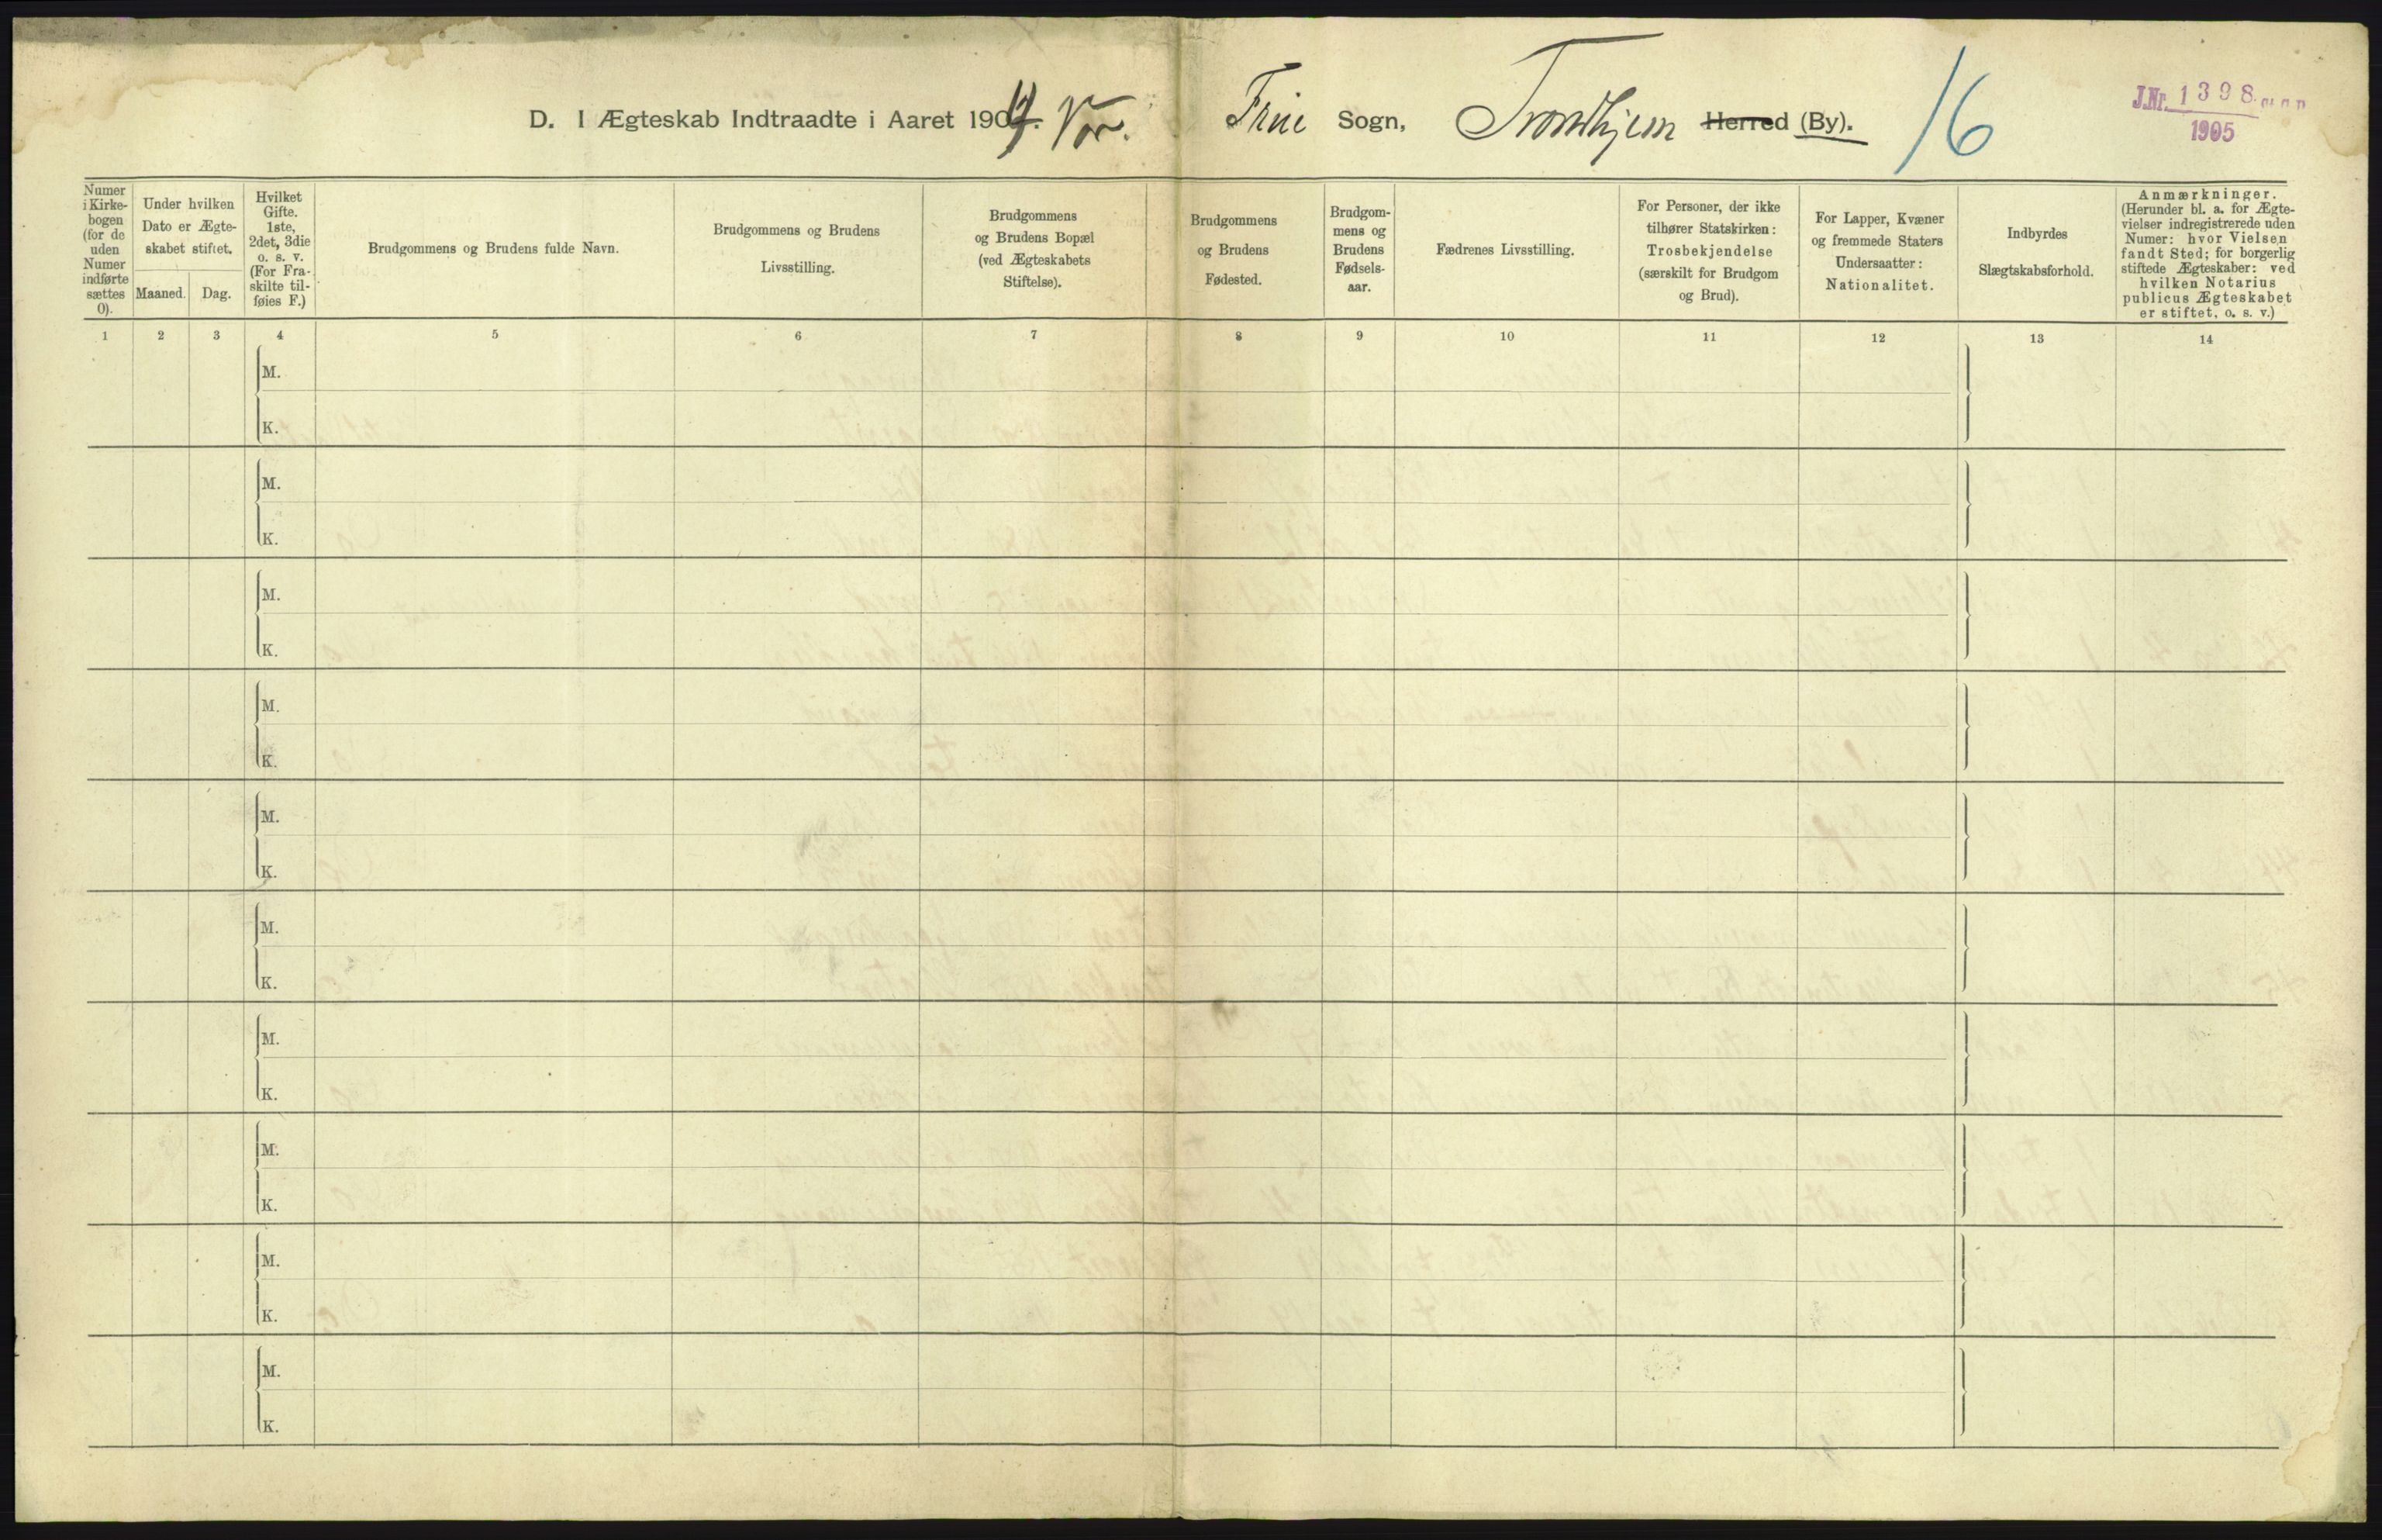 D. I Ægteskab Indtraadte i Aaret 1904. Vor Frue Sogn, Trondhjem Herred (By). 16
J.Nr. 1398
1905
Numer
i Kirke-
bogen
(for de
uden
Numer
indførte
sættes
0).
Under hvilken
Dato er Ægte-
skabet stiftet.
Maaned. Dag.
Hvilket
Gifte.
1ste,
2det, 3die
o. s. v.
(For Fra-
skilte til-
føies F.)
Brudgommens og Brudens fulde Navn.
Brudgommens og Brudens
Livsstilling.
Brudgommens
og Brudens Bopæl
(ved Ægteskabets
Stiftelse).
Brudgommens
og Brudens
Fødested.
Brudgom-
mens og
Brudens
Fødsels-
aar.
Fædrenes Livsstilling.
For Personer, der ikke
tilhører Statskirken:
Trosbekjendelse
(særskilt for Brudgom
og Brud).
For Lapper, Kvæner
og fremmede Staters
Undersaatter:
Nationalitet.
Indbyrdes
Slægtskabsforhold.
Anmærkninger.
(Herunder bl. a. for Ægte-
vielser indregistrerede uden
Numer: hvor Vielsen
fandt Sted; for borgerlig
stiftede Ægteskaber: ved
hvilken Notarius
publicus Ægteskabet
er stiftet, o. s. v.)
1 2 3 4 5 6 7 8 9 10 11 12 13 14
M.
K.
M.
K.
M.
K.
M.
K.
M.
K.
M.
K.
M.
K.
M.
K.
M.
K.
M.
K.